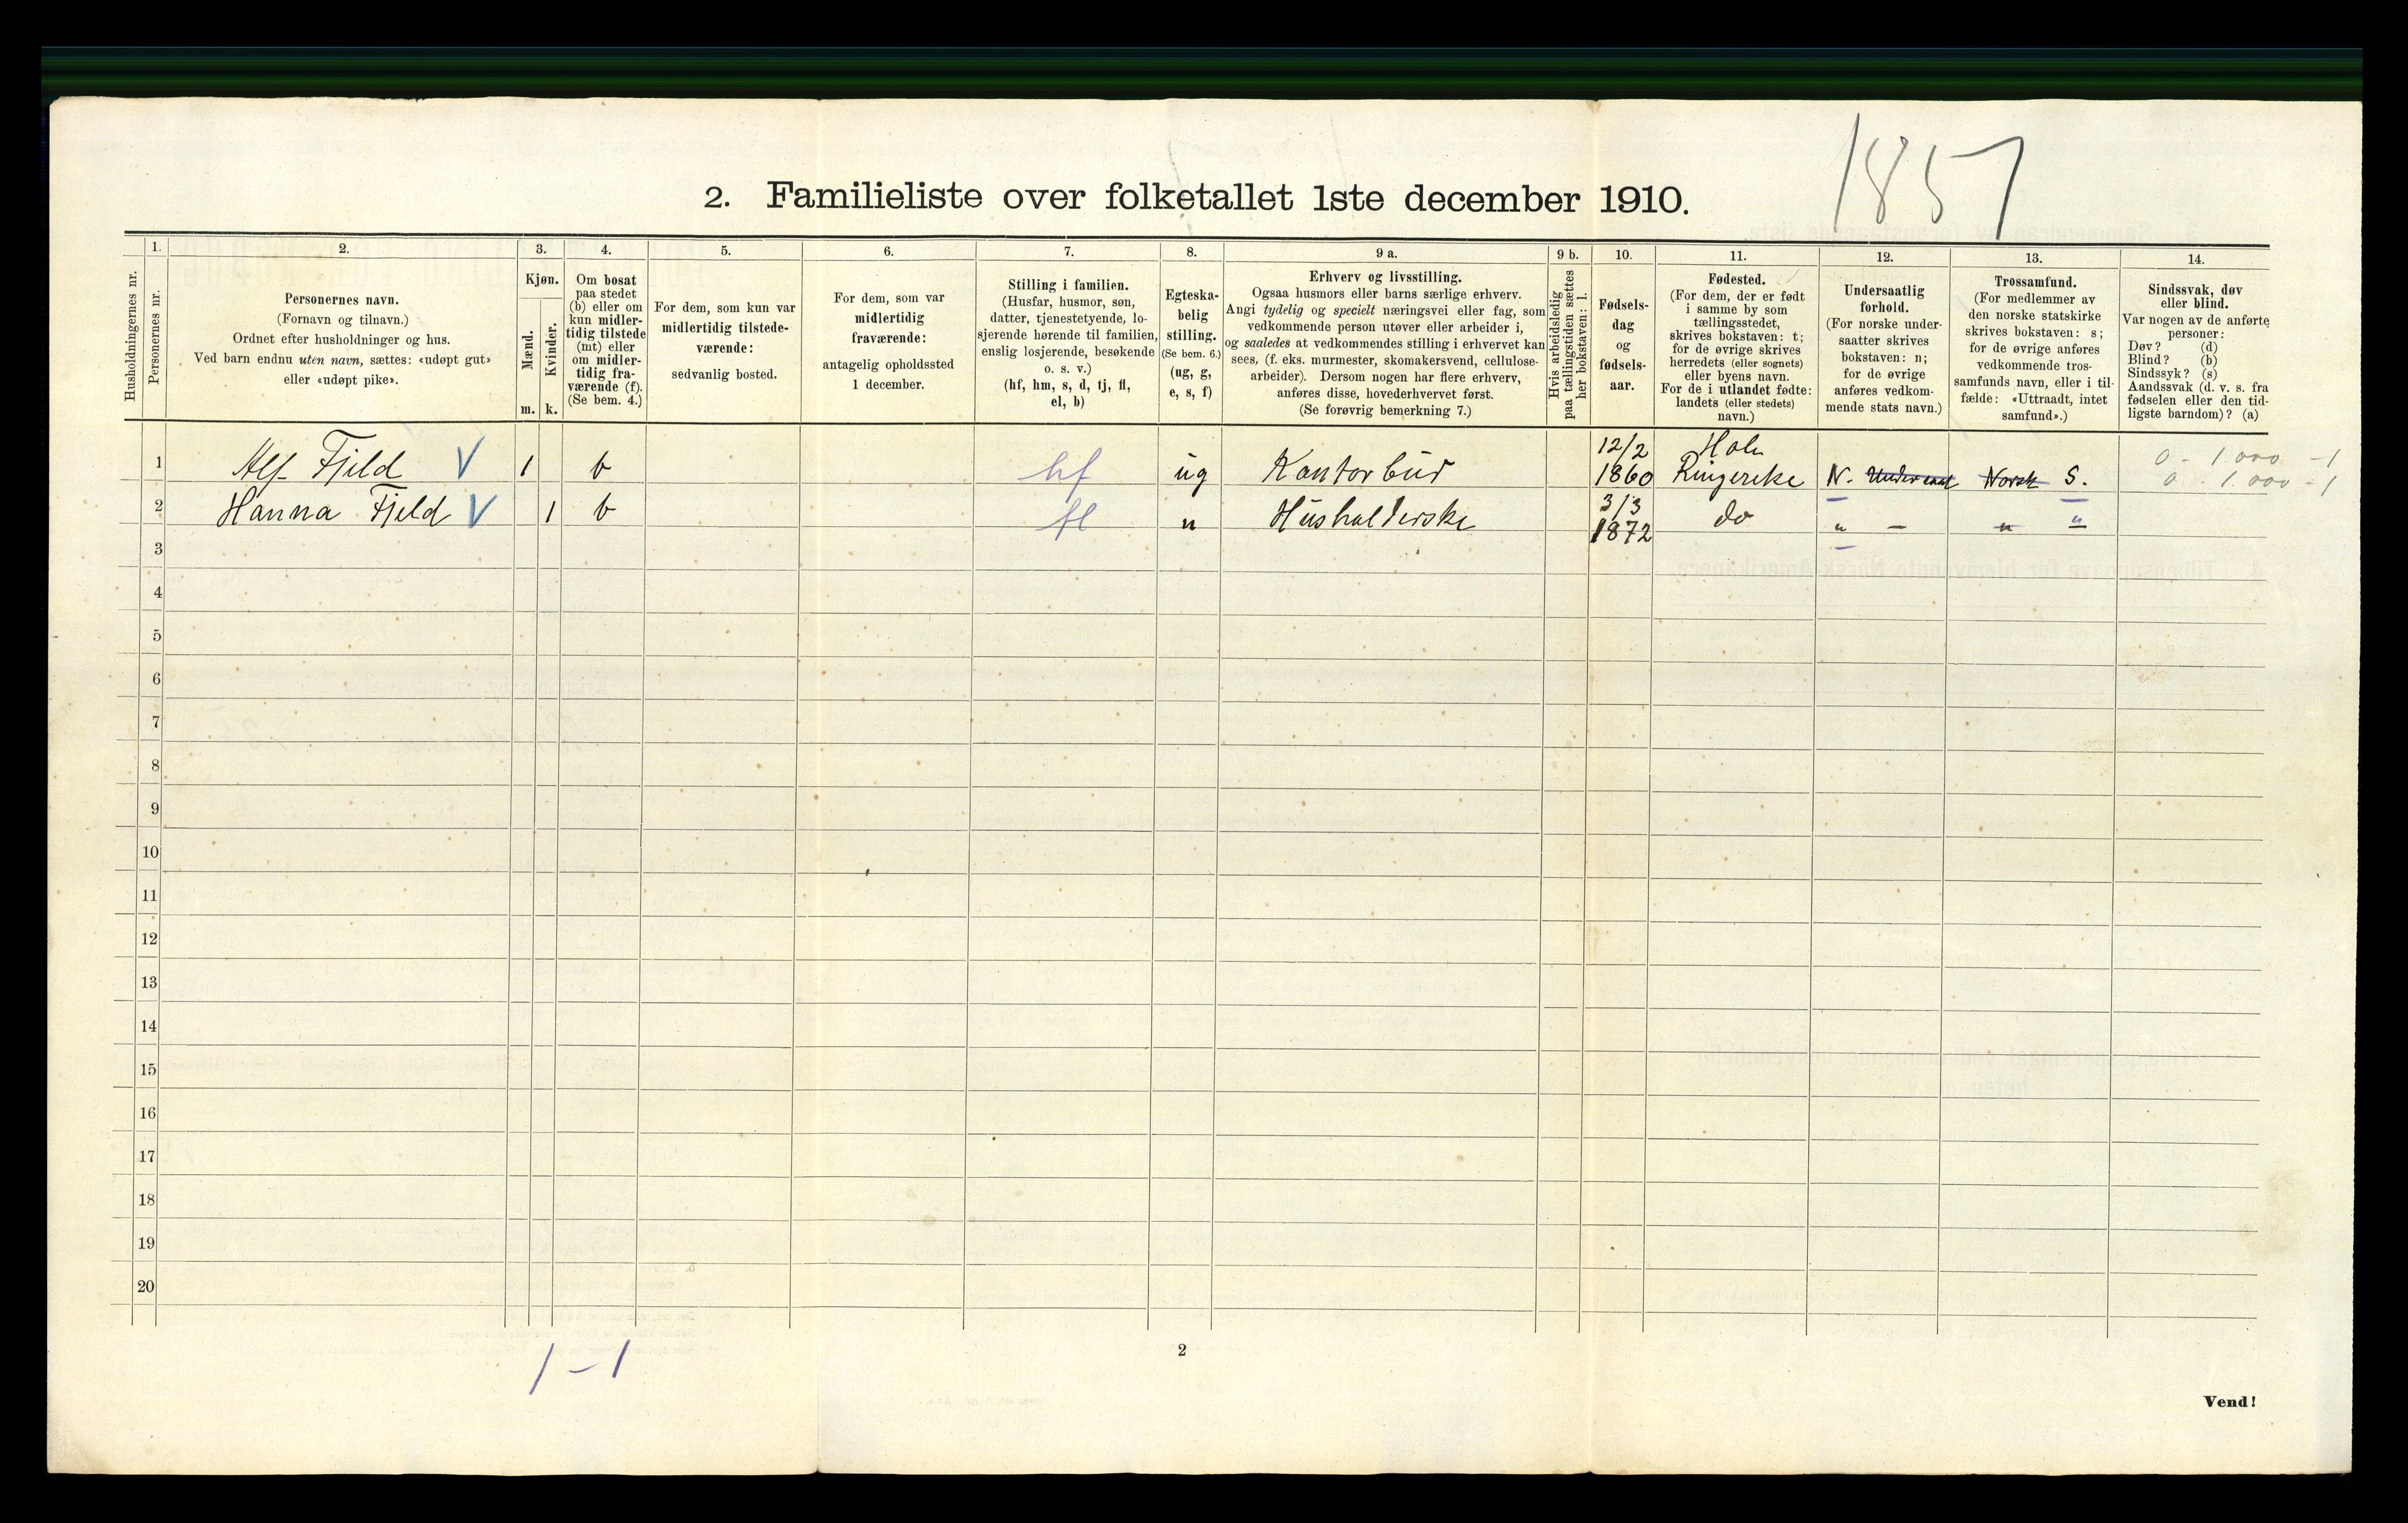 1857
2. Familieliste over folketallet 1ste december 1910.
Husholdningernes nr.
1.
Personernes nr.
2.
Personernes navn.
(Fornavn og tilnavn.)
Ordnet efter husholdninger og hus.
Ved barn endnu uten navn, sættes: «udøpt gut»
eller «udøpt pike».
3.
Kjøn.
Mænd.
m.
Kvinder.
k.
4.
Om bosat
paa stedet
(b) eller om
kun midler-
tidig tilstede
(mt) eller
om midler-
tidig fra-
værende (f).
(Se bem. 4.)
5.
For dem, som kun var
midlertidig tilstede-
værende:
sedvanlig bosted.
6.
For dem, som var
midlertidig
fraværende:
antagelig opholdssted
1 december.
7.
Stilling i familien.
(Husfar, husmor, søn,
datter, tjenestetyende, lo-
sjerende hørende til familien,
enslig losjerende, besøkende
o. s. v.)
(hf, hm, s, d, tj, fl,
el, b)
8.
Egteska-
belig
stilling.
(Se bem. 6.)
(ug, g,
e, s, f)
9 a.
Erhverv og livsstilling.
Ogsaa husmors eller barns særlige erhverv.
Angi tydelig og specielt næringsvei eller fag, som
vedkommende person utøver eller arbeider i,
og saaledes at vedkommendes stilling i erhvervet kan
sees, (f. eks. murmester, skomakersvend, cellulose-
arbeider). Dersom nogen har flere erhverv,
anføres disse, hovederhvervet først.
(Se forøvrig bemerkning 7.)
9 b.
Hvis arbeidsledig
paa tællingstiden sættes
her bokstaven: l.
10.
Fødsels-
dag
og
fødsels-
aar.
11.
Fødested.
(For dem, der er født
i samme by som
tællingsstedet,
skrives bokstaven: t;
for de øvrige skrives
herredets (eller sognets)
eller byens navn.
For de i utlandet fødte:
landets (eller stedets)
navn.)
12.
Undersaatlig
forhold.
(For norske under-
saatter skrives
bokstaven: n;
for de øvrige
anføres vedkom-
mende stats navn.)
13.
Trossamfund.
(For medlemmer av
den norske statskirke
skrives bokstaven: s;
for de øvrige anføres
vedkommende tros-
samfunds navn, eller i til-
fælde: «Uttraadt, intet
samfund».)
14.
Sindssvak, døv
eller blind.
Var nogen av de anførte
personer:
Døv? (d)
Blind? (b)
Sindssyk? (s)
Aandssvak (d. v. s. fra
fødselen eller den tid-
ligste barndom)? (a)
1 Alf Fjeld V 1 b hf ug Kontorbud 12/2 1860 Hole Ringerike N. Undersaat Norsk S. 0 - 1000 - 1
0 - 1.000 - 1
2 Hanna Fjeld V 1 b fl " Husholderske 3/3 1872 do " - " "
3
4
5
6
7
8
9
10
11
12
13
14
15
16
17
18
19
20
1 - 1
2
Vend!